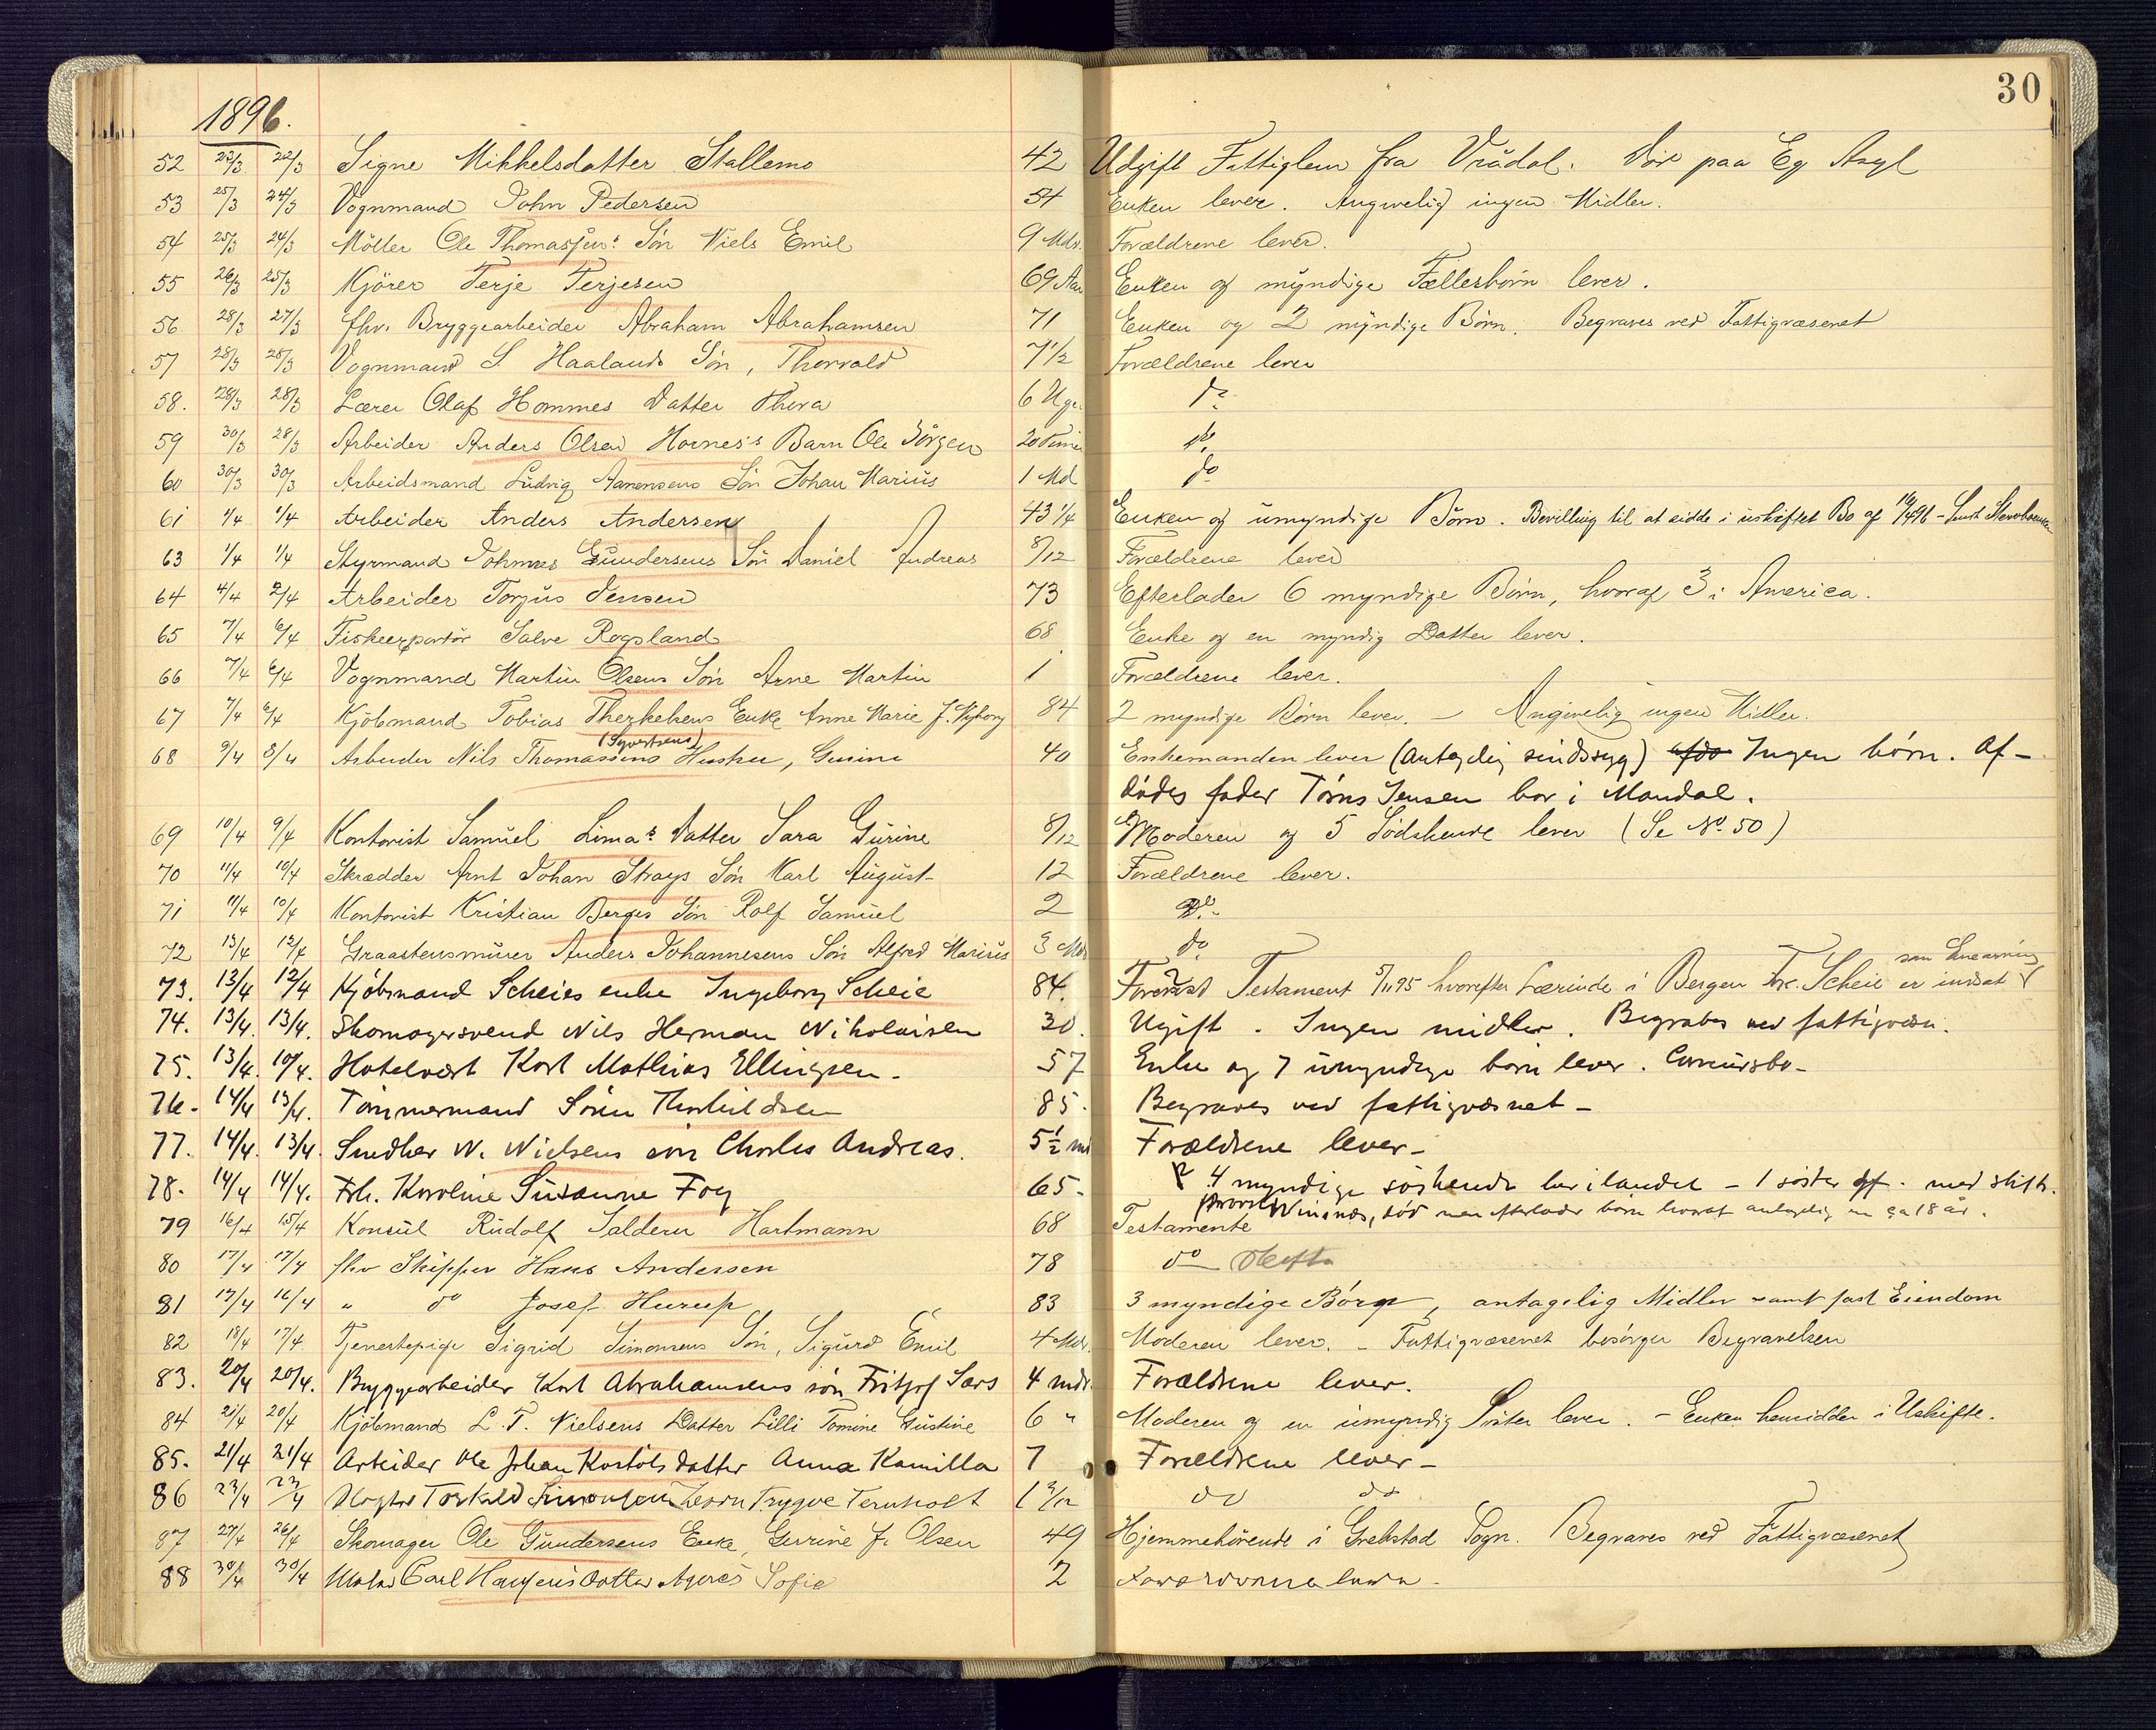 30
1896.
52 23/3 22/3 Signe Mikkelsdatter Stallemo 42 Udgift Fattiglem fra Vrådal. Död paa Eg Asyl
53 25/3 24/3 Vognmand John Pedersen 54 Enken lever. Angivelig ingen Midler.
54 25/3 24/3 Möller Ole Thomassens Sön Niels Emil 9 Mdr. Forældrene lever.
55 26/3 25/3 Kjörer Terje Terjesen 69 Aar Enken og myndige Fællesbörn lever.
56 28/3 27/3 fhv. Bryggearbeider Abraham Abrahamsen 71 Enken og 2 myndige Börn. Begraves ved Fattigvæsenet
57 28/3 28/3 Vognmand S. Haalands Sön, Thorvald 7 1/2 Forældrene lever
58. 28/3 28/3 Lærer Olaf Hommes Datter Thora 6 Uger do
59 30/3 28/3 Arbeider Anders Olsen Hornes's Barn Ole Jörgen 20 Timer do
60 30/3 30/3 Arbeidsmand Ludvig Aanensens Sön Johan Marius 1 Md do
61 1/4 1/4 Arbeider Anders Andersen 43 1/4 Enken og umyndige Börn. Bevilling til at sidde i uskiftet Bo af
63 1/4 1/4 Styrmand Johannes Gundersens Sön Daniel Andreas 8/12 Forældrene lever
64 4/4 2/4 Arbeider Torjus Jensen 73 Efterlader 6 myndige Börn, hvoraf 3 i America.
65 7/4 6/4 Fiskeexportör Salve Rogsland 68 Enke og en myndig Datter lever.
66 7/4 6/4 Vognmand Martin Olsens Sön Arne Martin 1 Forældrene lever.
67 7/4 6/4 Kjöbmand Tobias Therkelsens Enke Anne Marie f. Nyborg 84 2 myndige Börn lever. – Angivelig ingen Midler.
(Syvertsens)
68 9/4 8/4 Arbeider Nils Thomassens Hustru, Gunine 40 Enkemanden lever (antagelig sindssyg) Ingen börn. Af-
dödes fader Töns Jensen bor i Mandal.
69 10/4 9/4 Kontorist Samuel Limas Datter Sara Gurine 8/12 Moderen og 5 Södskende lever (Se No. 50)
70 11/4 10/4 Skrædder Arnt Johan Strays Sön Karl August 12 Forældrene lever.
71 11/4 10/4 Kontorist Kristian Berges Sön Rolf Samuel 2 Do.
72 13/4 12/4 Graastensmurer Anders Johannesens Sön Alfred Marius 3 Mdr do
som Enearving
73. 13/4 12/4 Kjöbmand Scheies enke Ingeborg Scheie 84. Forevist Testament 5/11 95 hvorefter Lærinde i Bergen Frk. Scheie er indsat
74. 13/4. 13/4. Skomagersvend Nils Herman Nikolaisen 30. Ugift. Ingen midler. Begrabes ved fattigvæsn.
75. 13/4. 10/4. Hotelvært Karl Mathias Ellingsen. 57 Enke og 7 umyndige börn lever. Concursbo-
76. 14/4 13/4. Tömmermand Sören Thorkildsen 85. Begraves ved fattigvæsnet –
77. 14/4. 13/4. Smedker N. Nielsens sön Charles Andreas. 5 1/2 md Forældrene lever –
78. 14/4 14/4. Frk. Karoline Susanne Foy 65. 4 myndige söskende her i landet – 1 söster gf. med skift.
död men efterlader börn hvoraf antagelig en ca 18 år.
79 16/4 15/4 Konsul Rudolf Saldern Hartmann 68 Testamente
80 17/4 17/4 fhv Skipper Hans Andersen 78 do Skifte
81 17/4 16/4 " do Josef Hurup 83 3 myndige Börn, antagelig Midler samt fast Eiendom
82 18/4 17/4. Tjenestepige Sigrid Simonsens Sön, Sigurd Emil 4 Mdr. Moderen lever. – Fattigvæsenet besörger Begravelsen
83. 20/4 20/4. Bryggearbeider Karl Abrahamsens sön Fritjof Lars 4 mdr. Forældrene lever.
84 21/4 20/4 Kjöbmand L. T. Nielsens Datter Lilli Tomine Gustine 6 " Moderen og en umyndig Söster lever. – Enken hensidder i Uskifte.
85. 21/4 21/4 Arbeider Ole Johan Kostöls datter Anna Kamilla 7 Forældrene lever –
86 23/4 23/4 Torkild Simonsen Trygve Ternholt 1 3/12 do do
87 27/4 26/4 Skomager Ole Gundersens Enke, Gurine f. Olsen 49 Hjemmehörende i Grebstad Sogn. Begraves ved Fattigvæsenet
88 30/4 30/4 Maler Carl Hansens Datter Agnes Sofie 2 Forældrene lever.